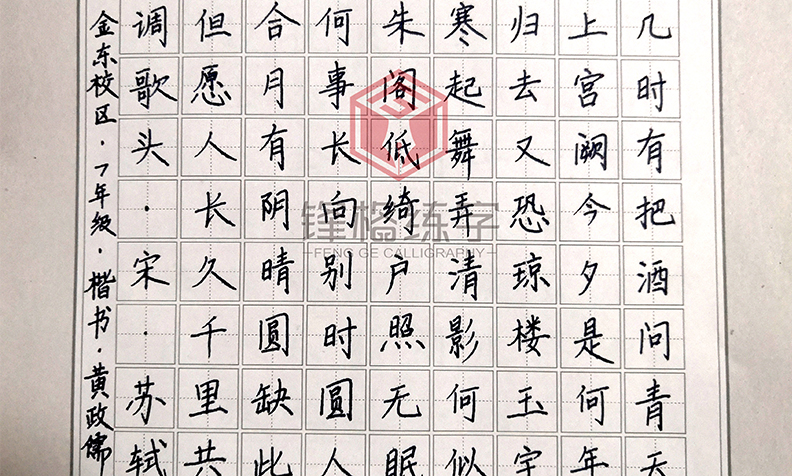 几时有把酒问青天
上宫阙今夕是何年
归去又恐琼楼玉宇
寒起舞弄清影何似
朱阁低绮户照无眠
何事长向别时圆人
合月有阴晴圆缺此
但愿人长久千里共
调歌头·宋·苏轼
金东校区·7年级·楷书·黄政儒
练字
FENG GE CALLIGRAPHY